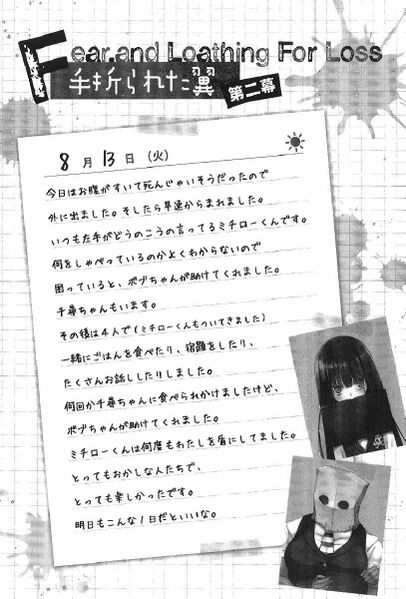 Fear,and Loathing For Loss
手折られた翼
第二幕
8月13日(火)
今日はお腹がすいて死んじゃいそうだったので
外に出ました。そしたら早速からまれました。
いつも左手がどうのこうの言ってるミチローくんです。
何をしゃべっているのかよくわからないので
困っていると、ボブちゃんが助けてくれました。
千尋ちゃんもいます。
その後は4人で(ミチローくんもついてきました)
一緒にごはんを食べたり、宿題をしたり、
たくさんお話ししたりしました。
何回か千尋ちゃんに食べられかけましたけど、
ボブちゃんが助けてくれました。
ミチローくんは何度もわたしを盾にしてました。
とってもおかしな人たちで、
とっても楽しかったです。
明日もこんな1日だといいな。